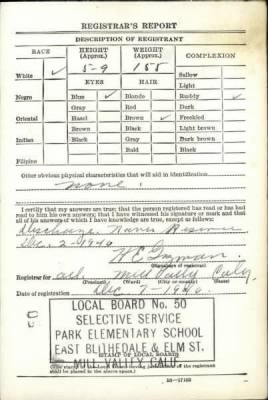 REGISTRAR'S REPORT
DESCRIPTION OF REGISTRANT
RACE HEIGHT (Approx.) WEIGHT (Approx.) COMPLEXION
White ✓ 5-9 155 Sallow
Light
EYES HAIR
Negro Blue ✓ Blonde Ruddy ✓
Gray Red Dark
Oriental Hazel Brown ✓ Freckled
Brown Black Light brown
Indian Black Gray Dark brown
Bald Black
Filipino
Other obvious physical characteristics that will aid in identification
none.
I certify that my answers are true; that the person registered has read or has
had read to him his own answers; that I have witnessed his signature or mark and that
all of his answers of which I have knowledge are true, except as follows:
Discharge Naval Reserve
Dec. 2-1940
(Signature of registrar)
Registrar for Mill Valley Calif.
(Precinct) (Ward) (City or county) (State)
Date of registration Dec 7-1940
LOCAL BOARD No. 50
SELECTIVE SERVICE
PARK ELEMENTARY SCHOOL
EAST BLITHEDALE & ELM ST.
MILL VALLEY, CALIF.
(STAMP OF LOCAL BOARD)
shall be placed in the above space.)